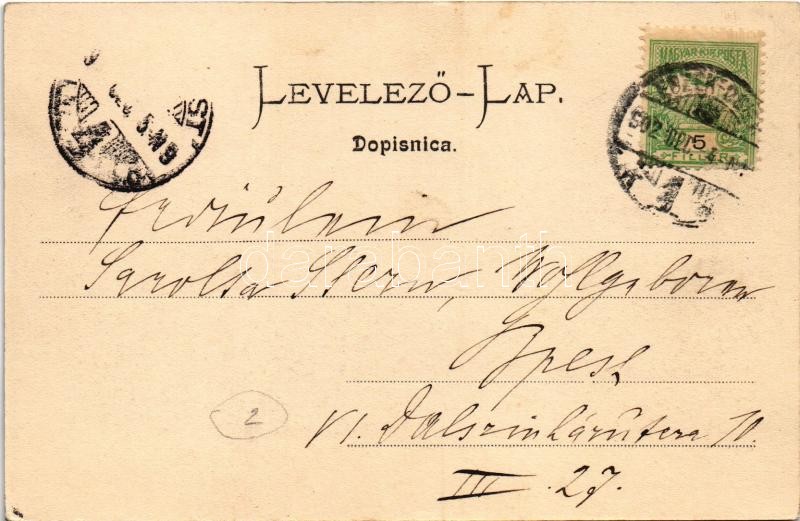 MAGYAR KIR. POSTA
5
FILLÉR
LEVELEZŐ-LAP.
Dopisnica.
Fräulein
Sarolta Stern, Wohlgeboren
Bpest
VI. Dalszinházutcza 10.
III. 27.
2
darabanth